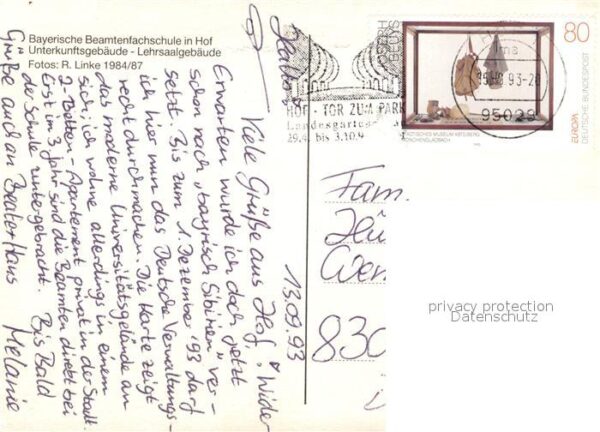 Bayerische Beamtenfachschule in Hof
Unterkunftsgebäude - Lehrsaalgebäude
Fotos: R. Linke 1984/87
80
EUROPA
DEUTSCHE BUNDESPOST
STÄDTISCHES MUSEUM ABTEIBERG
MÖNCHENGLADBACH
HOF - TOR ZUM PARK
Landesgarten
29.4. bis 3.10.9
93-20
95028
13.09.93
Viele Grüße aus Hof! Wider
Erwarten wurde ich doch jetzt
schon nach "bayrisch Sibirien" ver-
setzt. Bis zum 1. Dezember '93 darf
ich hier nun das Deutsche Verwaltungs-
recht durchmachen. Die Karte zeigt
das moderne Universitätsgelände an
sich, ich wohne allerdings in einem
2-Betten-Apartement privat in der Stadt.
Erst im 3. Jahr sind die Beamten direkt bei
der Schule untergebracht. Bis Bald
Grüße auch an Beate+Hans Melanie
Fam.
830
privacy protection
Datenschutz